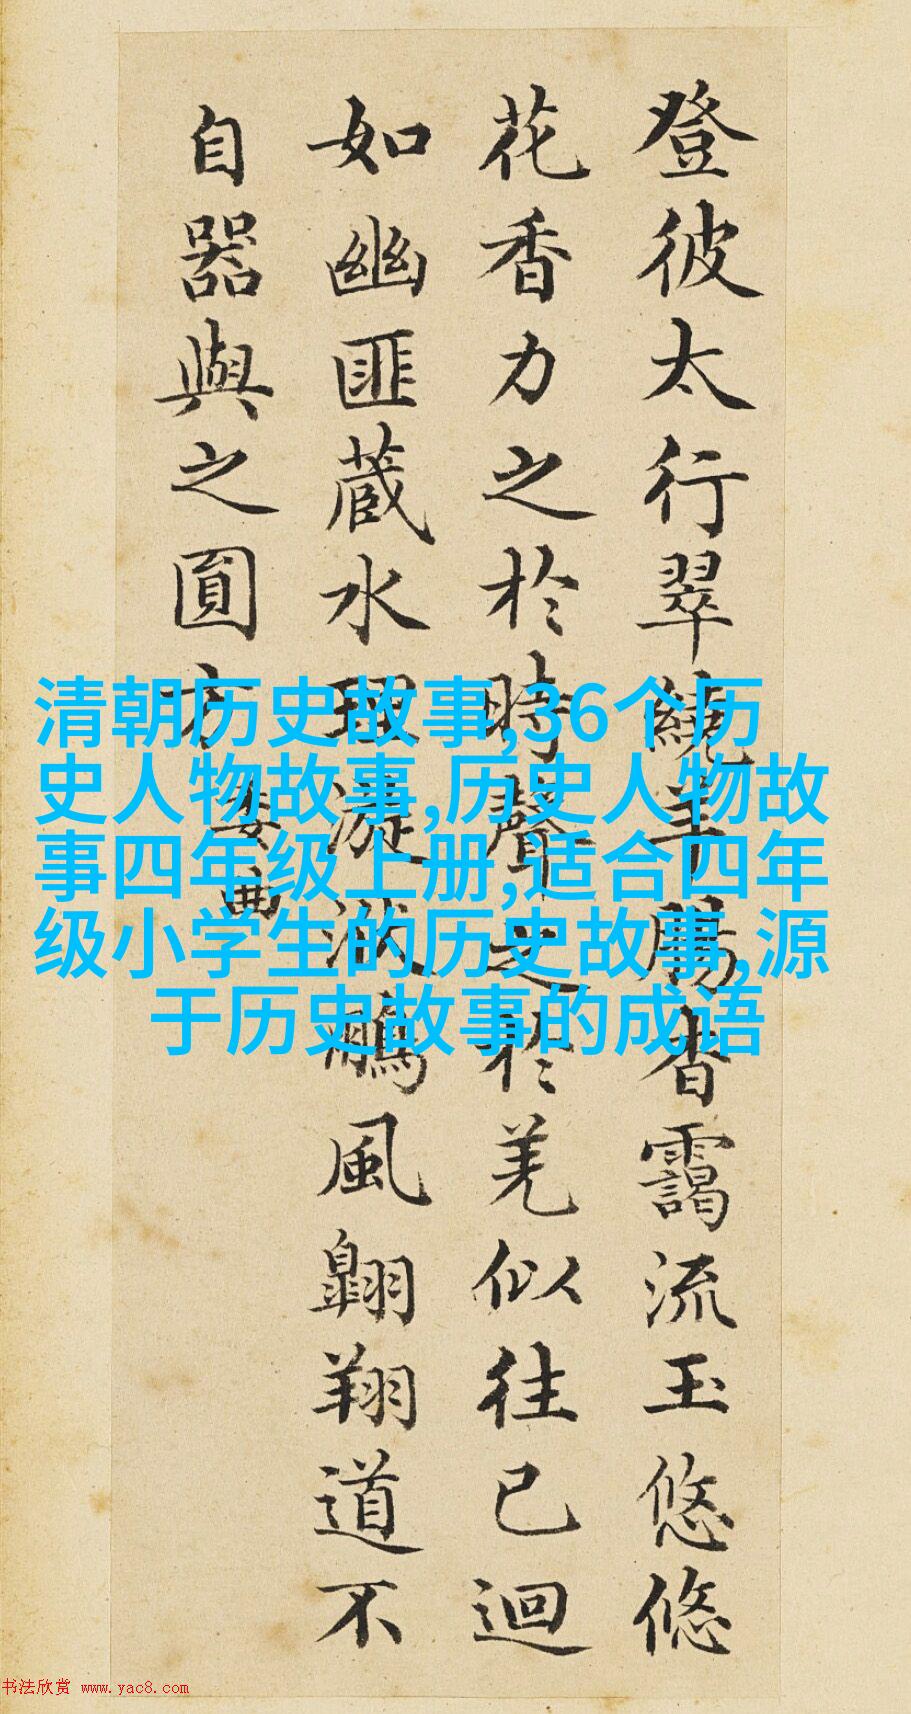 登彼太行翠繞羊腸杳靄流玉悠悠
花香力之於時聲之於羌似往已迴
如幽匪蔵水理漩洑鵬風翺翔道不
自器與之圓方 委曲
清朝历史故事,36个历
史人物故事,历史人物故
事四年级上册,适合四年
级小学生的历史故事,源
于历史故事的成语
书法欣赏 www.yac8.com